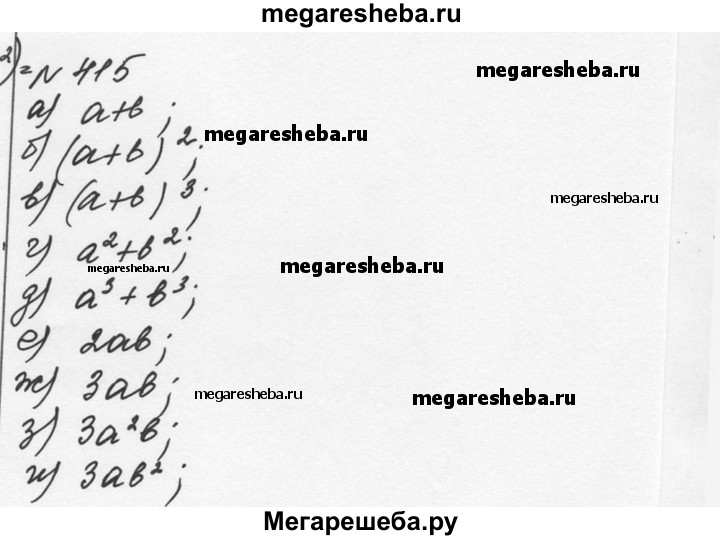 megaresheba.ru
2)
= N 415
megaresheba.ru
а) a+b ;
б) (a+b)²;
megaresheba.ru
в) (a+b)³;
megaresheba.ru
г) a²+b²;
megaresheba.ru
megaresheba.ru
д) a³+b³;
е) 2ab;
ж) 3ab;
megaresheba.ru
megaresheba.ru
з) 3a²b;
и) 3ab²;
Мегарешеба.ру